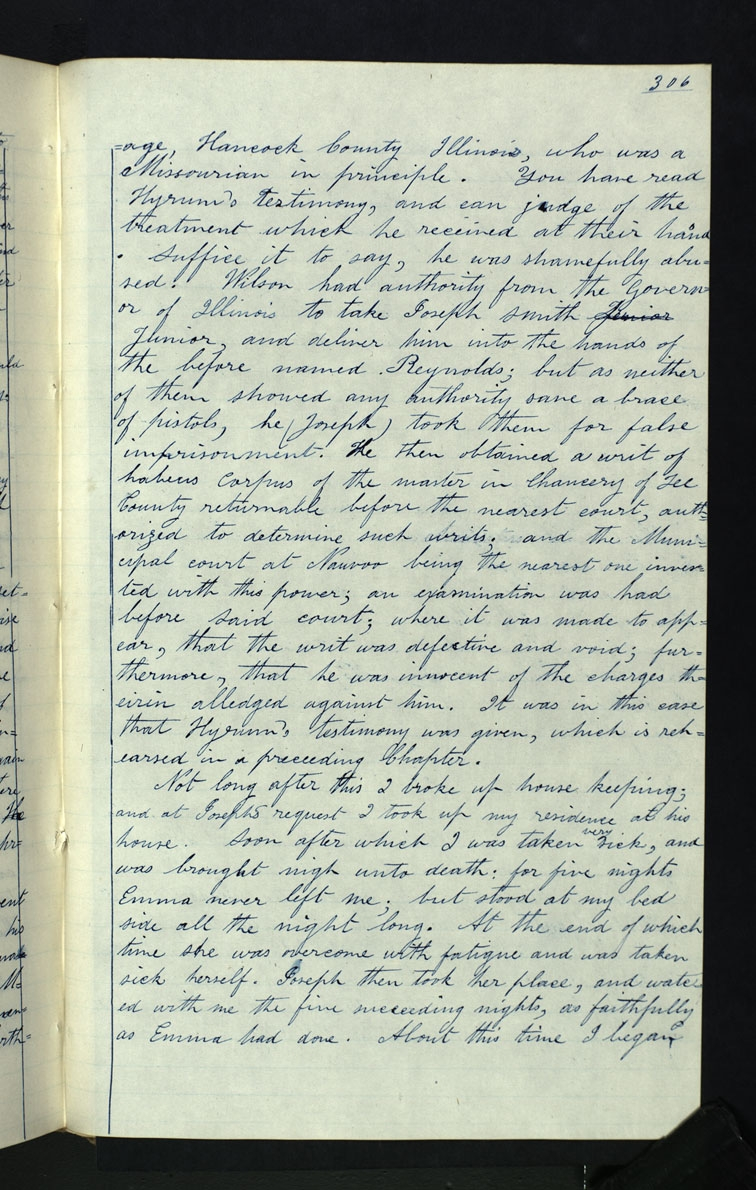 306
=age, Hancock County Illinois, who was a
Missourian in principle. You have read
Hyrum's testimony, and can judge of the
treatment which he received at their hand
. suffice it to say, he was shamefully abu=
sed. Wilson had authority from the Govern=
or of Illinois to take Joseph smith Junior
Junior, and deliver him into the hands of
the before named Reynolds; but as neither
of them showed any authority save a brace
of pistols, he (Joseph) took them for false
imprisonment. He then obtained a writ of
habeus corpus of the master in Chancery of Lee
County returnable before the nearest court, auth=
orized to determine such writs; and the Muni=
cipal court at Nauvoo being the nearest one inves=
ted with this power; an examination was had
before said court; where it was made to app=
ear, that the writ was defective and void; fur=
thermore, that he was innocent of the charges th=
eirin alledged against him. It was in this case
that Hyrum's testimony was given, which is reh=
earsed in a preceeding Chapter.
Not long after this I broke up house keeping;
and at Josephs request I took up my residence at his
house. soon after which I was taken very sick, and
was brought nigh unto death: for five nights
Emma never left me; but stood at my bed
side all the night long. At the end of which
time she was overcome with fatigue and was taken
sick herself. Joseph then took her place, and watc
ed with me the five succeeding nights, as faithfully
as Emma had done. About this time I began